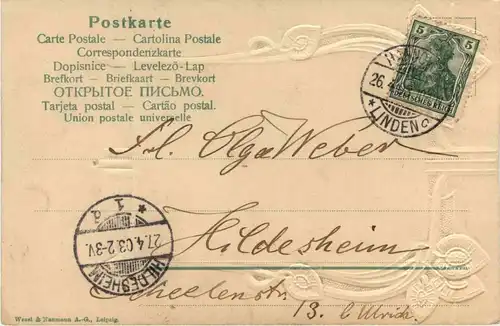 Postkarte
Carte Postale — Cartolina Postale
Correspondenzkarte
Dopisnice — Levelező-Lap
Brefkort — Briefkaart — Brevkort
ОТКРЫТОЕ ПИСЬМО.
Tarjeta postal — Cartão postal.
Union postale universelle
5 5
26.4
* LINDEN
Frl. Olga Weber
1
a
27.4.03.2-3V.
HILDESHEIM
Hildesheim
Scheelenstr
13. b Ulrich
Wezel & Naumann A.-G., Leipzig.